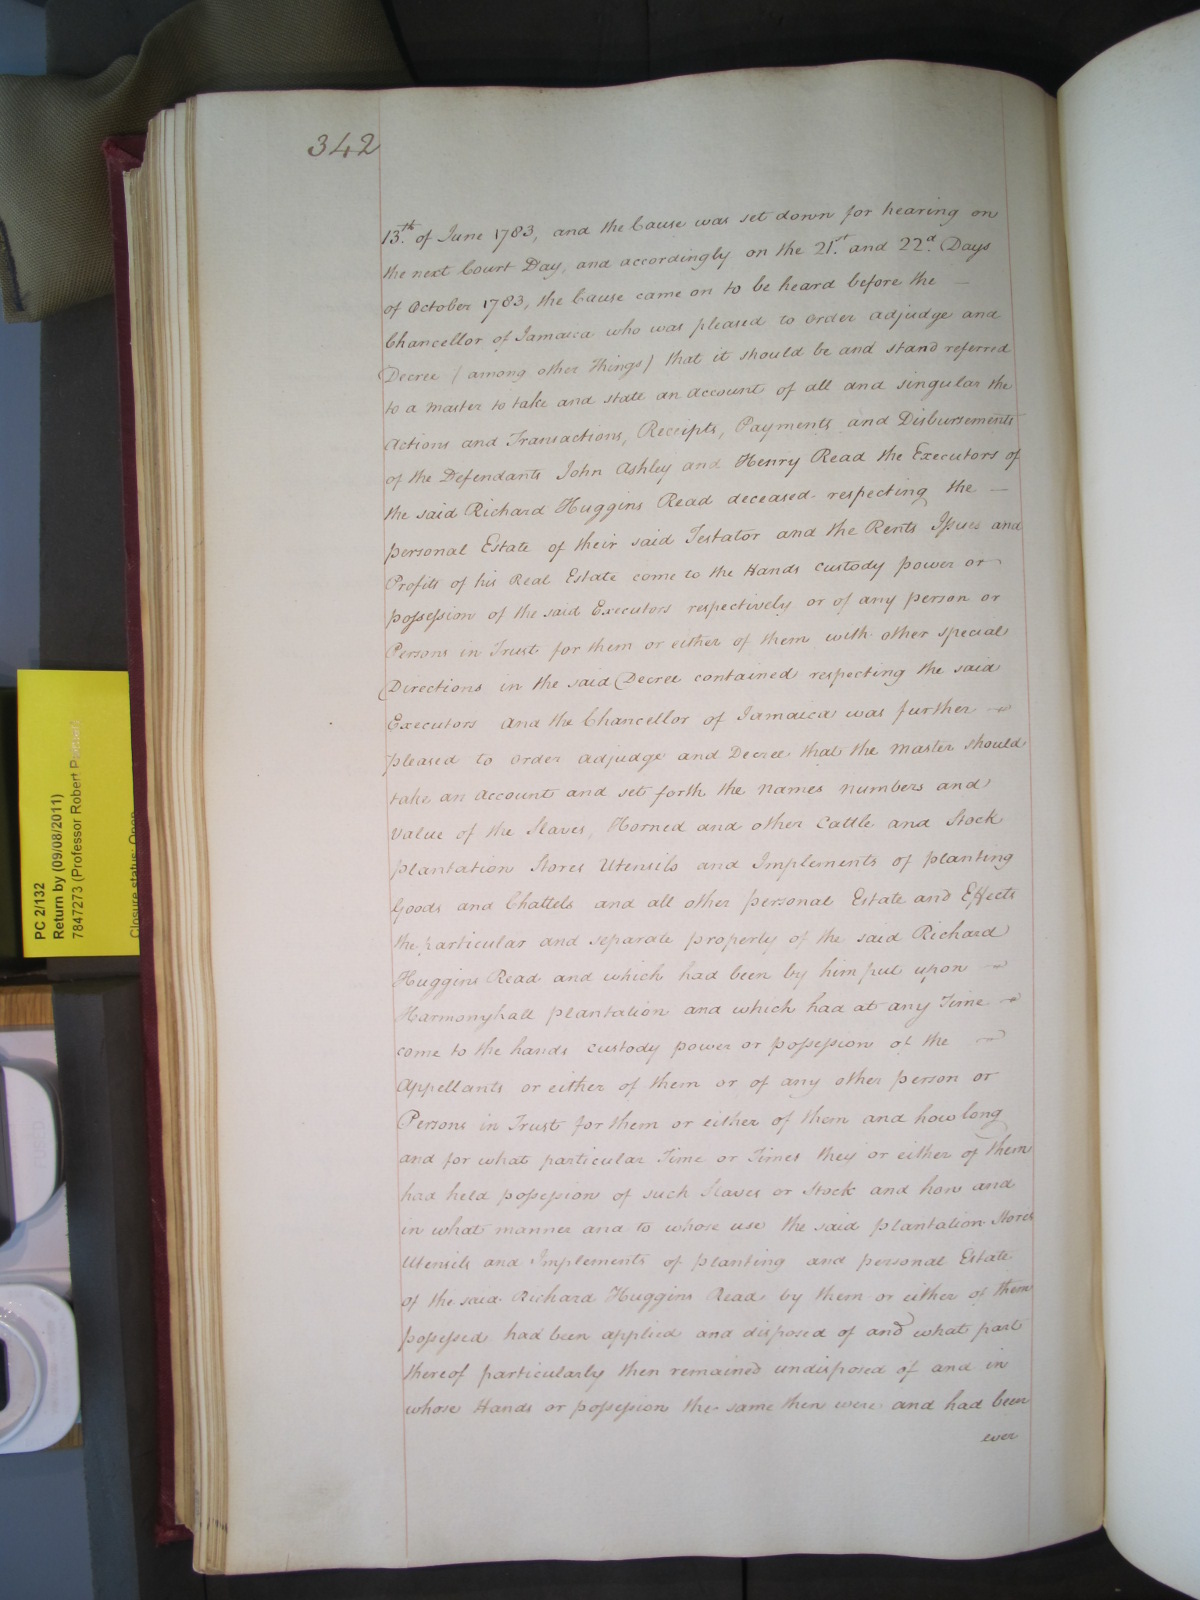 342
13.th of June 1783, and the Cause was set down for hearing on
the next Court Day, and accordingly on the 21.st and 22.d Days
of October 1783, the Cause came on to be heard before the —
Chancellor of Jamaica who was pleased to order adjudge and
Decree (among other things) that it should be and stand referred
to a Master to take and state an account of all and singular the
Actions and Transactions, Receipts, Payments and Disbursements
of the Defendants John Ashley and Henry Read the Executors of
the said Richard Huggins Read deceased respecting the —
personal Estate of their said Testator and the Rents Issues and
Profits of his Real Estate come to the Hands custody power or
possession of the said Executors respectively or of any person or
Persons in Trust for them or either of them with other special
Directions in the said Decree contained respecting the said
Executors and the Chancellor of Jamaica was further
pleased to order adjudge and Decree that the Master should
take an Account and set forth the Names Numbers and
Value of the Slaves, Horned and other Cattle and Stock
plantation Stores Utensils and Implements of planting
Goods and Chattels and all other personal Estate and Effects
the particular and separate property of the said Richard
Huggins Read and which had been by him put upon
Harmonyhall plantation and which had at any Time
come to the hands custody power or possession of the
Appellants or either of them or of any other person or
Persons in Trust for them or either of them and how long
and for what particular Time or Times they or either of them
had held possession of such Slaves or Stock and how and
in what manner and to whose use the said plantation Stores
Utensils and Implements of planting and personal Estate
of the said Richard Huggins Read by them or either of them
possessed had been applied and disposed of and what part
thereof particularly then remained undisposed of and in
whose Hands or possession the same then were and had been
ever
PC 2/132
Return by (09/08/2011)
7847273 (Professor Robert
Closure status: Open